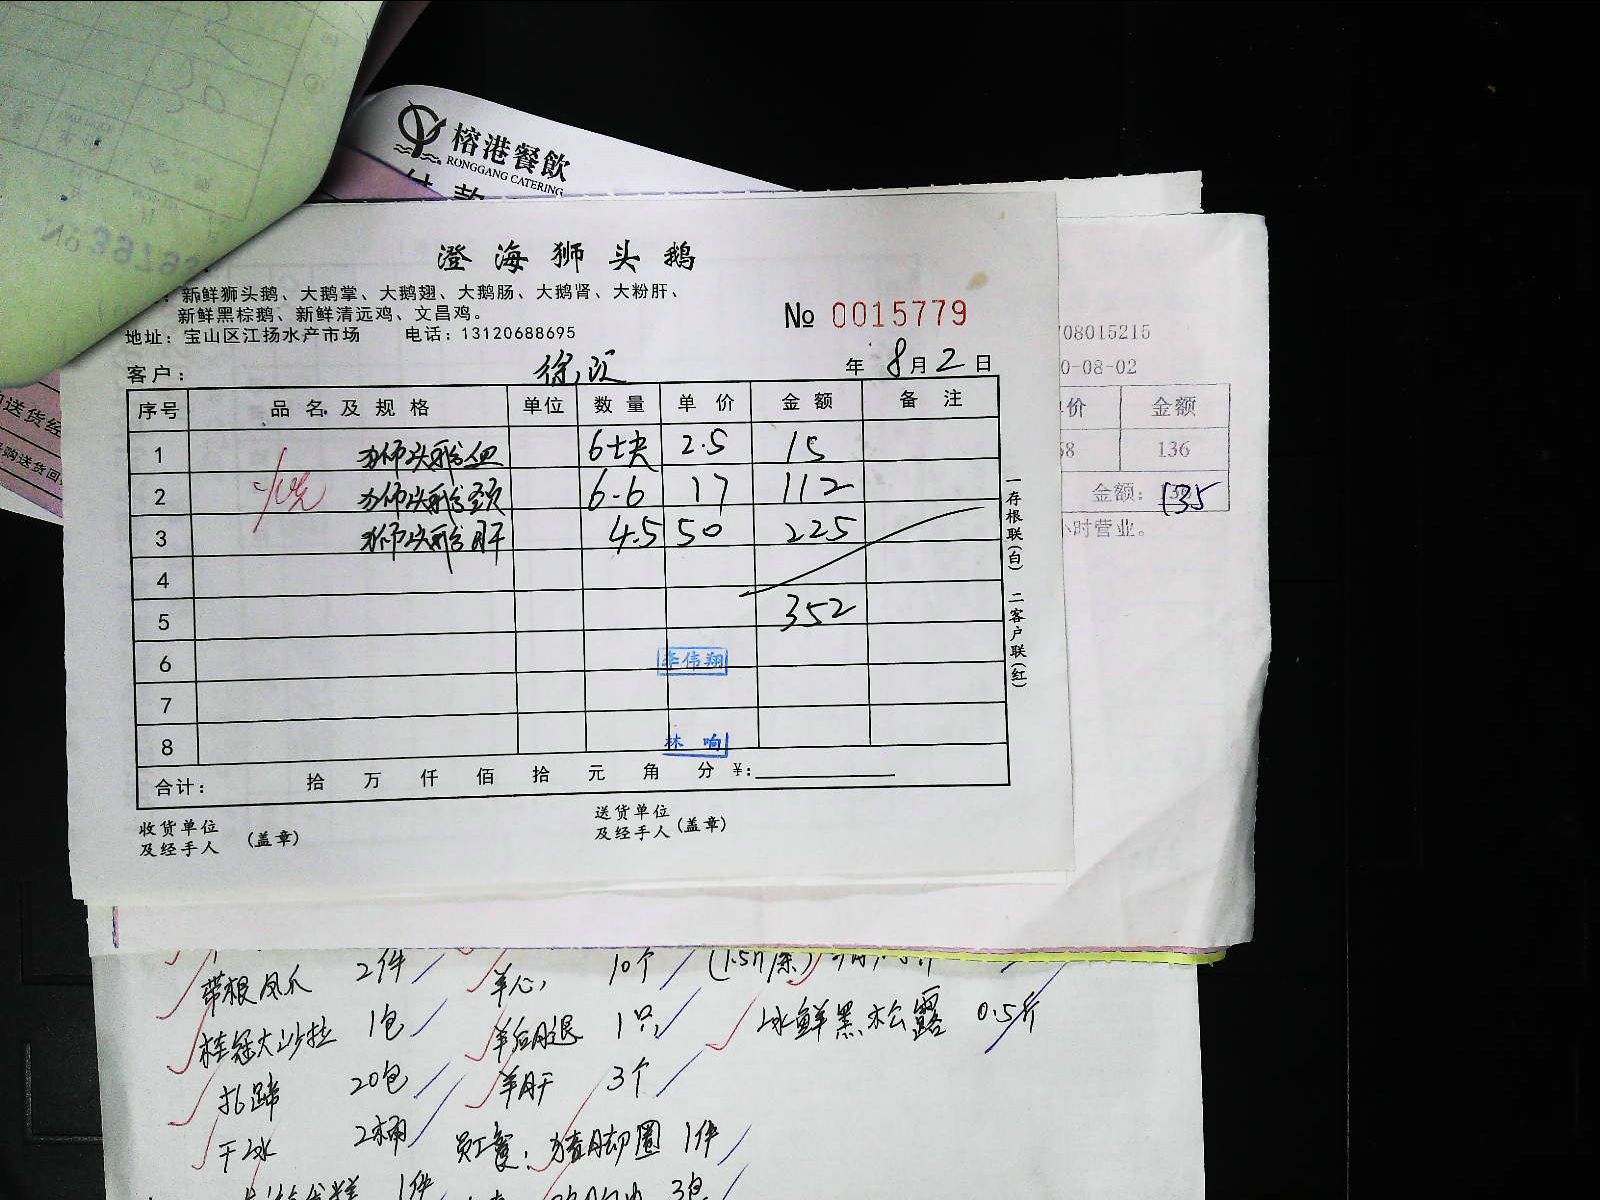 榕港餐飲
RONGGANG CATERING
付款
澄海狮头鹅
新鲜狮头鹅、大鹅掌、大鹅翅、大鹅肠、大鹅肾、大粉肝、
新鲜黑棕鹅、新鲜清远鸡、文昌鸡。
地址：宝山区江扬水产市场 电话：13120688695
№ 0015779
客户： 年 8月2日
序号 品名及规格 单位 数量 单价 金额 备注
1 狮头鹅血 6块 2.5 15
2 狮头鹅颈 6.6 17 112
3 狮头鹅肝 4.5 50 225
4
5 352
6 李伟翔
7
8 林响
合计： 拾 万 仟 佰 拾 元 角 分 ¥:
收货单位
及经手人 (盖章)
送货单位
及经手人 (盖章)
一存根联(白) 二客户联(红)
08015215
0-08-02
价 金额
58 136
金额: 135
小时营业。
送货经
购送货回
带根凤爪 2件 羊心 10个
桂冠大沙拉 1包 羊后腿 1只 冰鲜黑松露 0.5斤
扎蹄 20包 羊肝 3个
干冰 2桶 员工餐：猪脚圈 1件
1件 3包